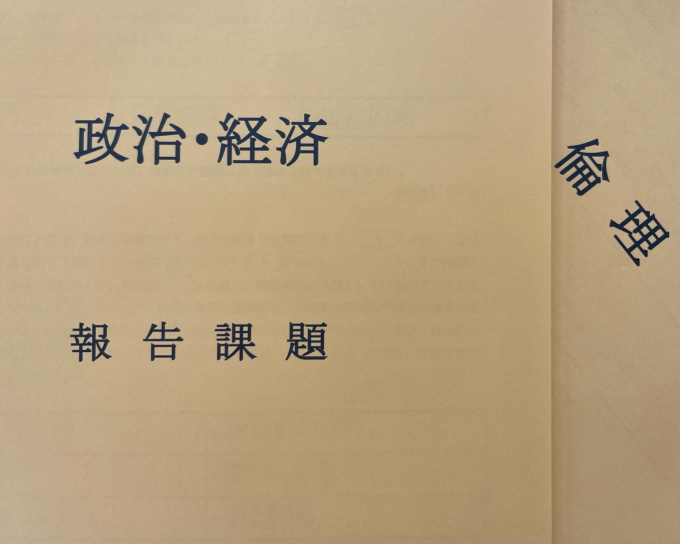 政治・経済
報告課題
倫理